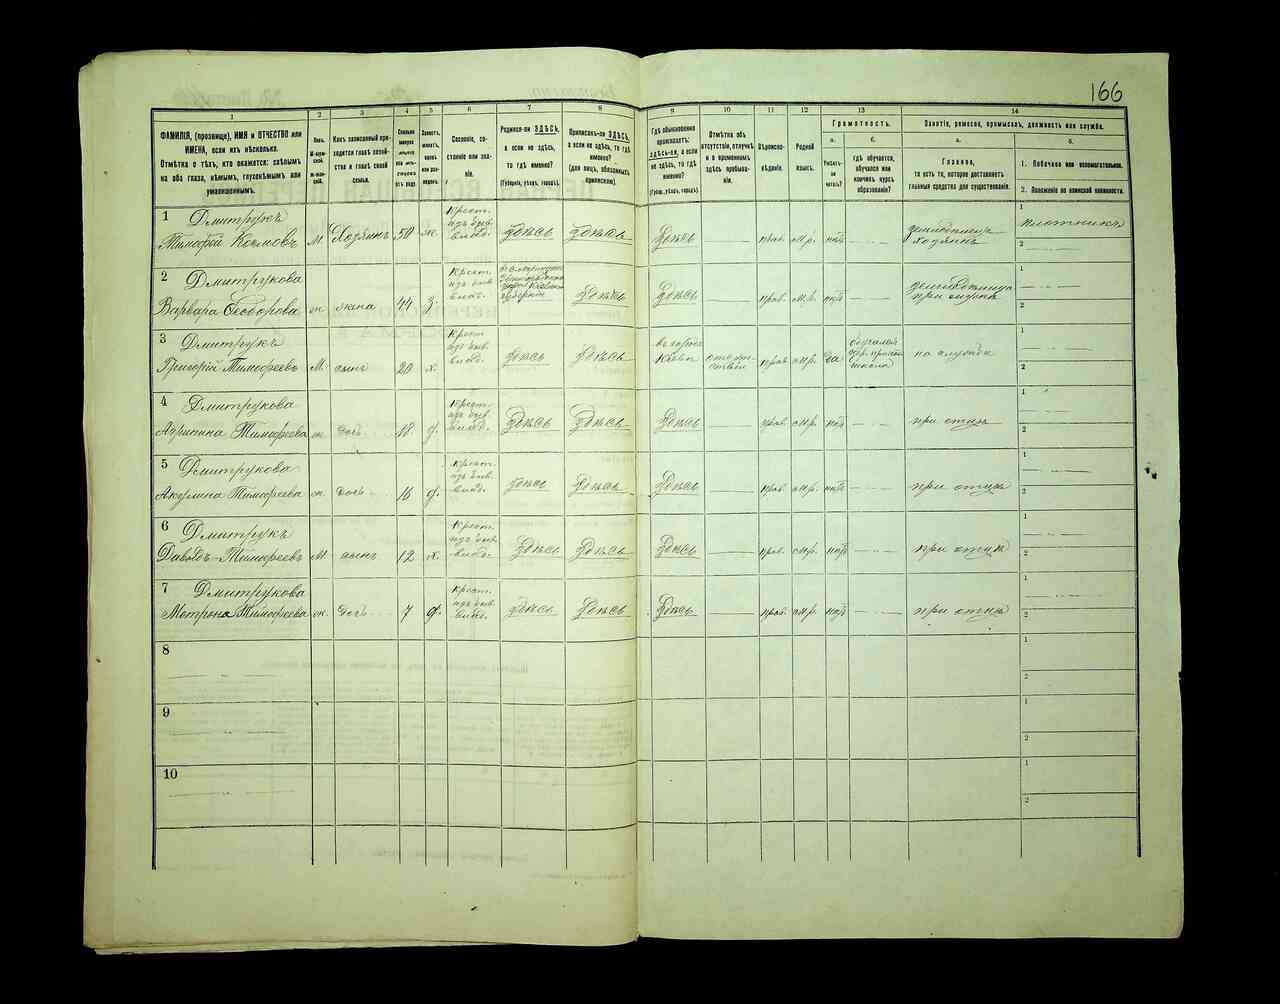 166
1
2
3
4
5
6
7
8
9
10
11
12
13
14
ФАМИЛІЯ, (прозвище), ИМЯ и ОТЧЕСТВО или
ИМЕНА, если ихъ нѣсколько.
Отмѣтка о тѣхъ, кто окажется: слѣпымъ
на оба глаза, нѣмымъ, глухонѣмымъ или
умалишеннымъ.
Полъ.
Какъ записанный при-
ходится главѣ хозяй-
ства и главѣ своей
семьи.
Сословіе, со-
стояніе или зва-
ніе.
Родился-ли ЗДѢСЬ,
а если не здѣсь,
то гдѣ именно?
(Губернія, уѣздъ, городъ).
Приписанъ-ли ЗДѢСЬ,
а если не здѣсь, то гдѣ
именно?
(для лицъ, обязанныхъ
припискою).
Гдѣ обыкновенно
проживаетъ:
здѣсь-ли, а если
не здѣсь, то гдѣ
именно?
(Губер., уѣздъ, городъ).
Отмѣтка объ
отсутствіи, отлучкѣ
и о временномъ
здѣсь пребыва-
ніи.
Вѣроиспо-
вѣданіе.
Родной
языкъ.
Грамотность.
а.
б.
Умѣетъ-
ли
читать?
гдѣ обучается,
обучался или
кончилъ курсъ
образованія?
Занятіе, ремесло, промыселъ, должность или служба.
а.
б.
Главное,
то есть то, которое доставляетъ
главныя средства для существованія.
1. Побочное или вспомогательное.
2. Положеніе по воинской повинности.
1 Дмитрукъ
Тимофѣй Космовъ М Хозяинъ 50 ж.
Крест.
изъ быв.
владѣ.
Здѣсь Здѣсь Здѣсь — прав. м.р. нѣтъ — - —
земледѣлецъ
хозяинъ
1 плотникъ
2
2 Дмитрукова
Варвара Ѳедорова ж жена 44 з.
Крест
изъ быв.
владѣ.
губерніи
Здѣсь Здѣсь — прав. м.р. нѣтъ — - —
при мужѣ
1
2
3 Дмитрукъ
Григорій Тимофеевъ М сынъ 20 х.
Крест
изъ быв.
владѣ.
Здѣсь Здѣсь
въ городѣ
Кіевѣ
прав. м.р. да
обучался
школа
на службѣ
1
2
4 Дмитрукова
Тимофеева ж дочь 18 д.
Крест
изъ быв.
владѣ.
Здѣсь Здѣсь Здѣсь — прав. м.р. нѣтъ — - — при отцѣ
1
2
5 Дмитрукова
Акулина Тимофеева ж дочь 16 д.
Крест.
изъ быв.
владѣ.
Здѣсь Здѣсь Здѣсь — прав. м.р. нѣтъ — - — при отцѣ
1
2
6 Дмитрукъ
Давыдъ Тимофеевъ М сынъ 12 х.
Крест.
изъ быв.
владѣ.
Здѣсь Здѣсь Здѣсь — прав. м.р. нѣтъ — - — при отцѣ
1
2
7 Дмитрукова
Мотрона Тимофеева ж дочь 7 д.
Крест.
изъ быв.
владѣ.
Здѣсь Здѣсь Здѣсь — прав. м.р. нѣтъ — - — при отцѣ
1
2
8
1
2
9
1
2
10
1
2